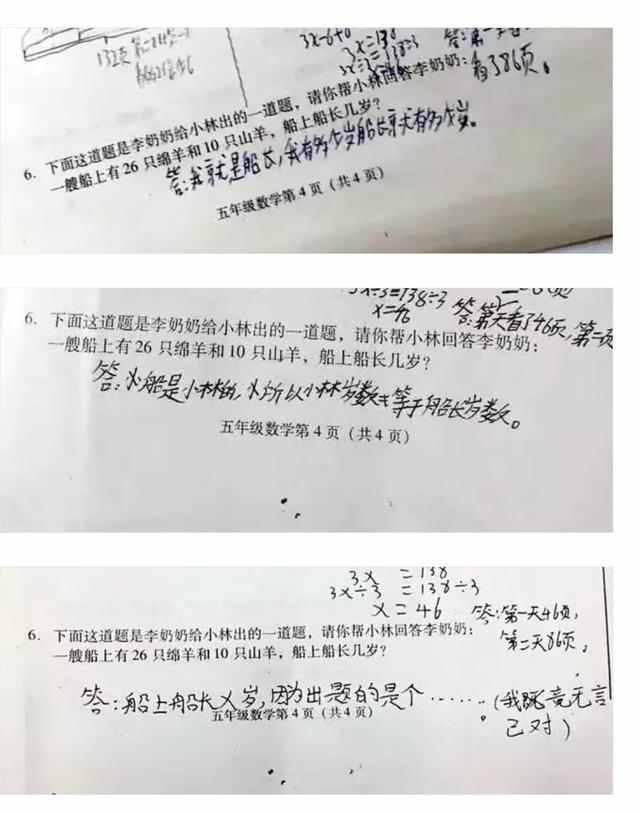 132页
3x-6+6
3x=138
3x÷3=138÷3
看了86页。
6. 下面这道题是李奶奶给小林出的一道题，请你帮小林回答李奶奶：
一艘船上有26只绵羊和10只山羊，船上船长几岁？
答：我就是船长，我有多少岁船长就有多少岁。
五年级数学第4页（共4页）
3x÷3=138÷3
x=46
答：第一天看了46页，第一页
6. 下面这道题是李奶奶给小林出的一道题，请你帮小林回答李奶奶：
一艘船上有26只绵羊和10只山羊，船上船长几岁？
答：船是小林的，所以小林岁数等于船长岁数。
五年级数学第4页（共4页）
3x =138
3x÷3 =138÷3
x=46
答：第一天46页，
第二天86页。
6. 下面这道题是李奶奶给小林出的一道题，请你帮小林回答李奶奶：
一艘船上有26只绵羊和10只山羊，船上船长几岁？
答：船上船长X岁，因为出题的是个……。（我既竟无言
五年级数学第4页（共4页）
已对）